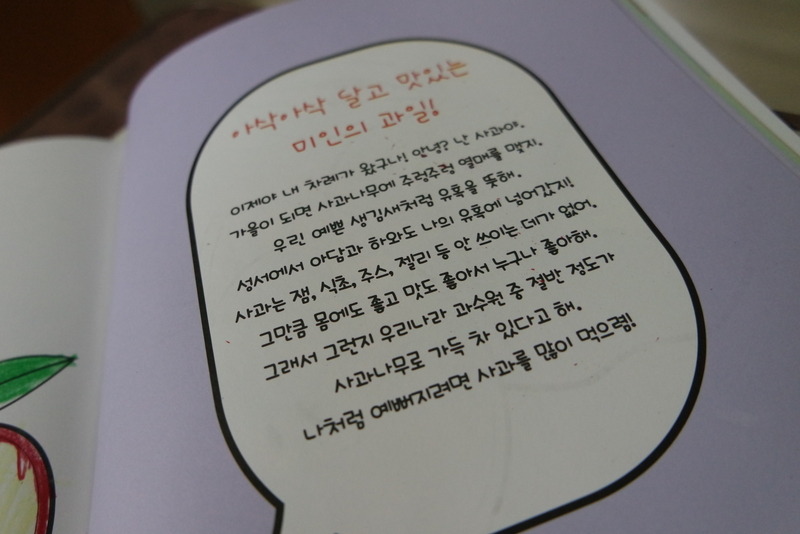 아삭아삭 달고 맛있는
미인의 과일!
이제야 내 차례가 왔구나! 안녕? 난 사과야.
가을이 되면 사과나무에 주렁주렁 열매를 맺지.
우린 예쁜 생김새처럼 유혹을 뜻해.
성서에서 아담과 하와도 나의 유혹에 넘어갔지!
사과는 잼, 식초, 주스, 젤리 등 안 쓰이는 데가 없어.
그만큼 몸에도 좋고 맛도 좋아서 누구나 좋아해.
그래서 그런지 우리나라 과수원 중 절반 정도가
사과나무로 가득 차 있다고 해.
나처럼 예뻐지려면 사과를 많이 먹으렴!